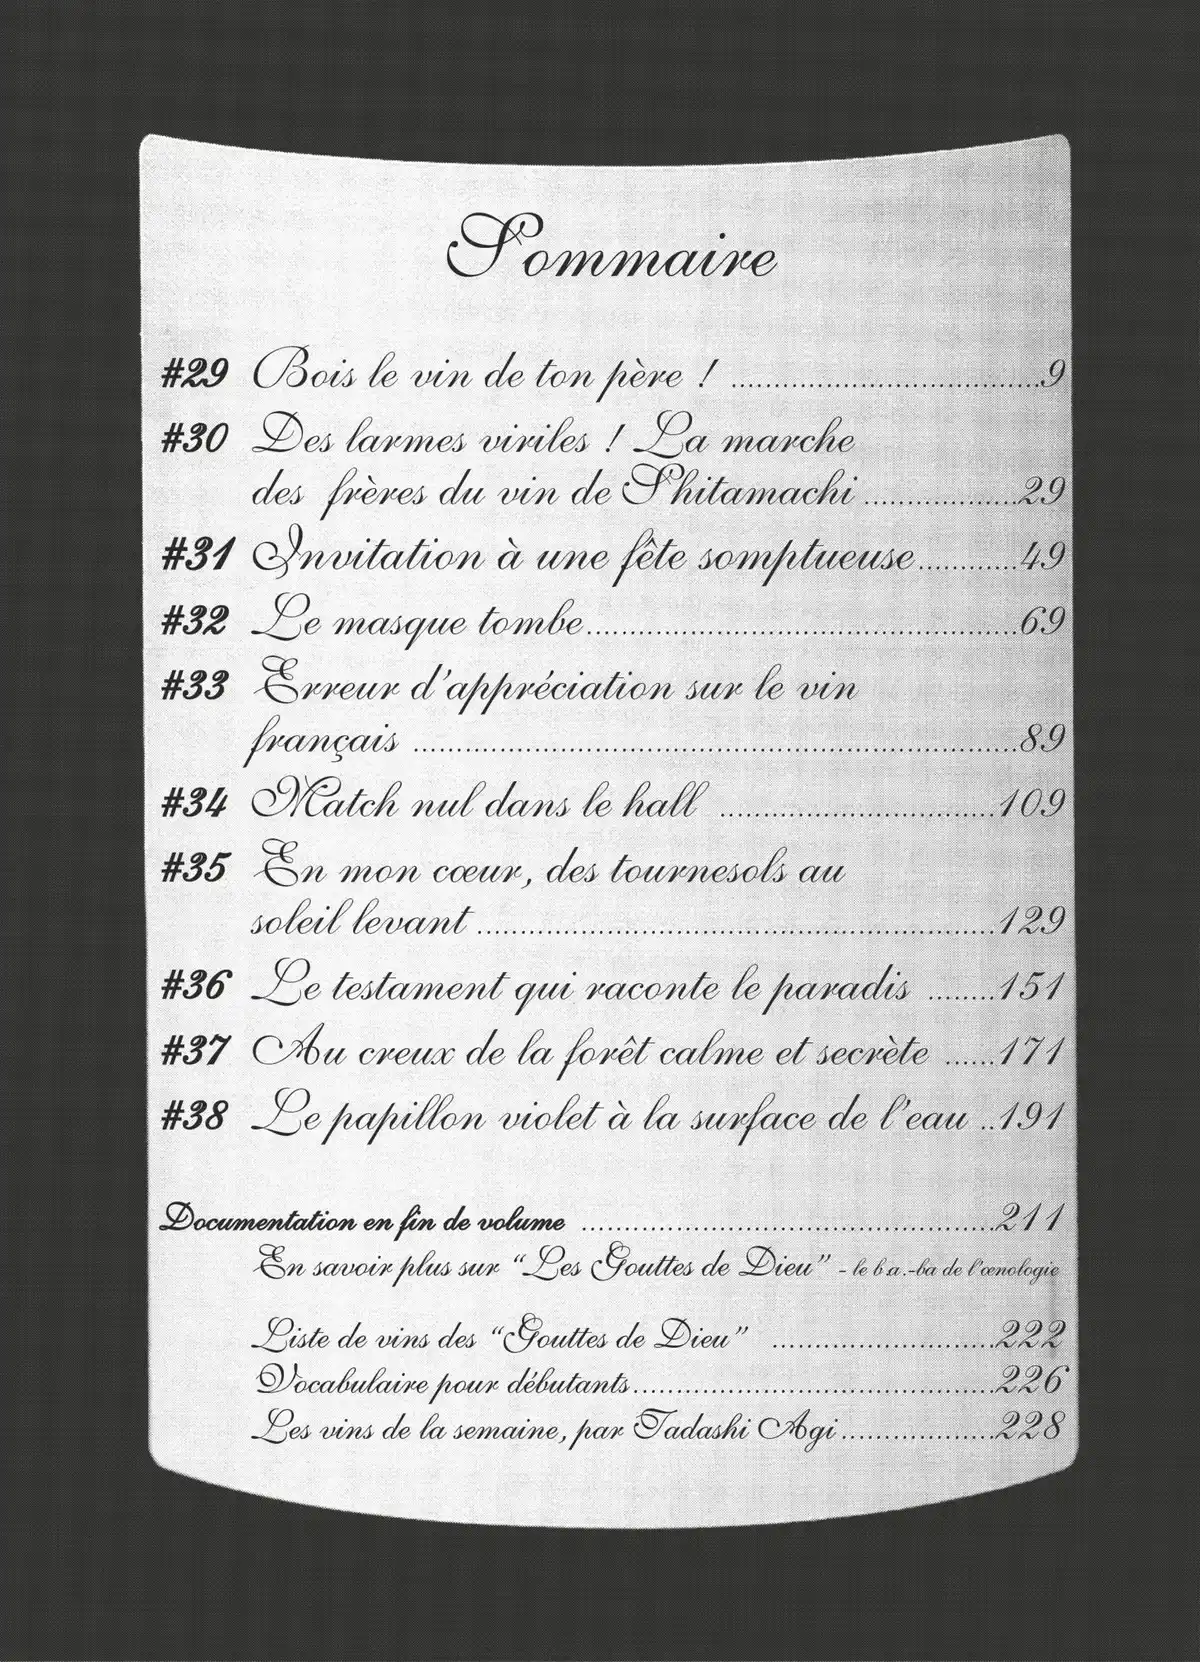 Sommaire
#29 Bois le vin de ton père ! ........................................9
#30 Des larmes viriles ! La marche
des frères du vin de Shitamachi ....................29
#31 Invitation à une fête somptueuse............49
#32 Le masque tombe.......................................................69
#33 Erreur d'appréciation sur le vin
français ..............................................................................89
#34 Match nul dans le hall ...................................109
#35 En mon cœur, des tournesols au
soleil levant ...................................................................129
#36 Le testament qui raconte le paradis ........151
#37 Au creux de la forêt calme et secrète ......171
#38 Le papillon violet à la surface de l'eau ..191
Documentation en fin de volume .....................................................211
En savoir plus sur “Les Gouttes de Dieu” - le b.a.-ba de l'œnologie
Liste de vins des “Gouttes de Dieu” .............................222
Vocabulaire pour débutants..............................................226
Les vins de la semaine, par Tadashi Agi...................228